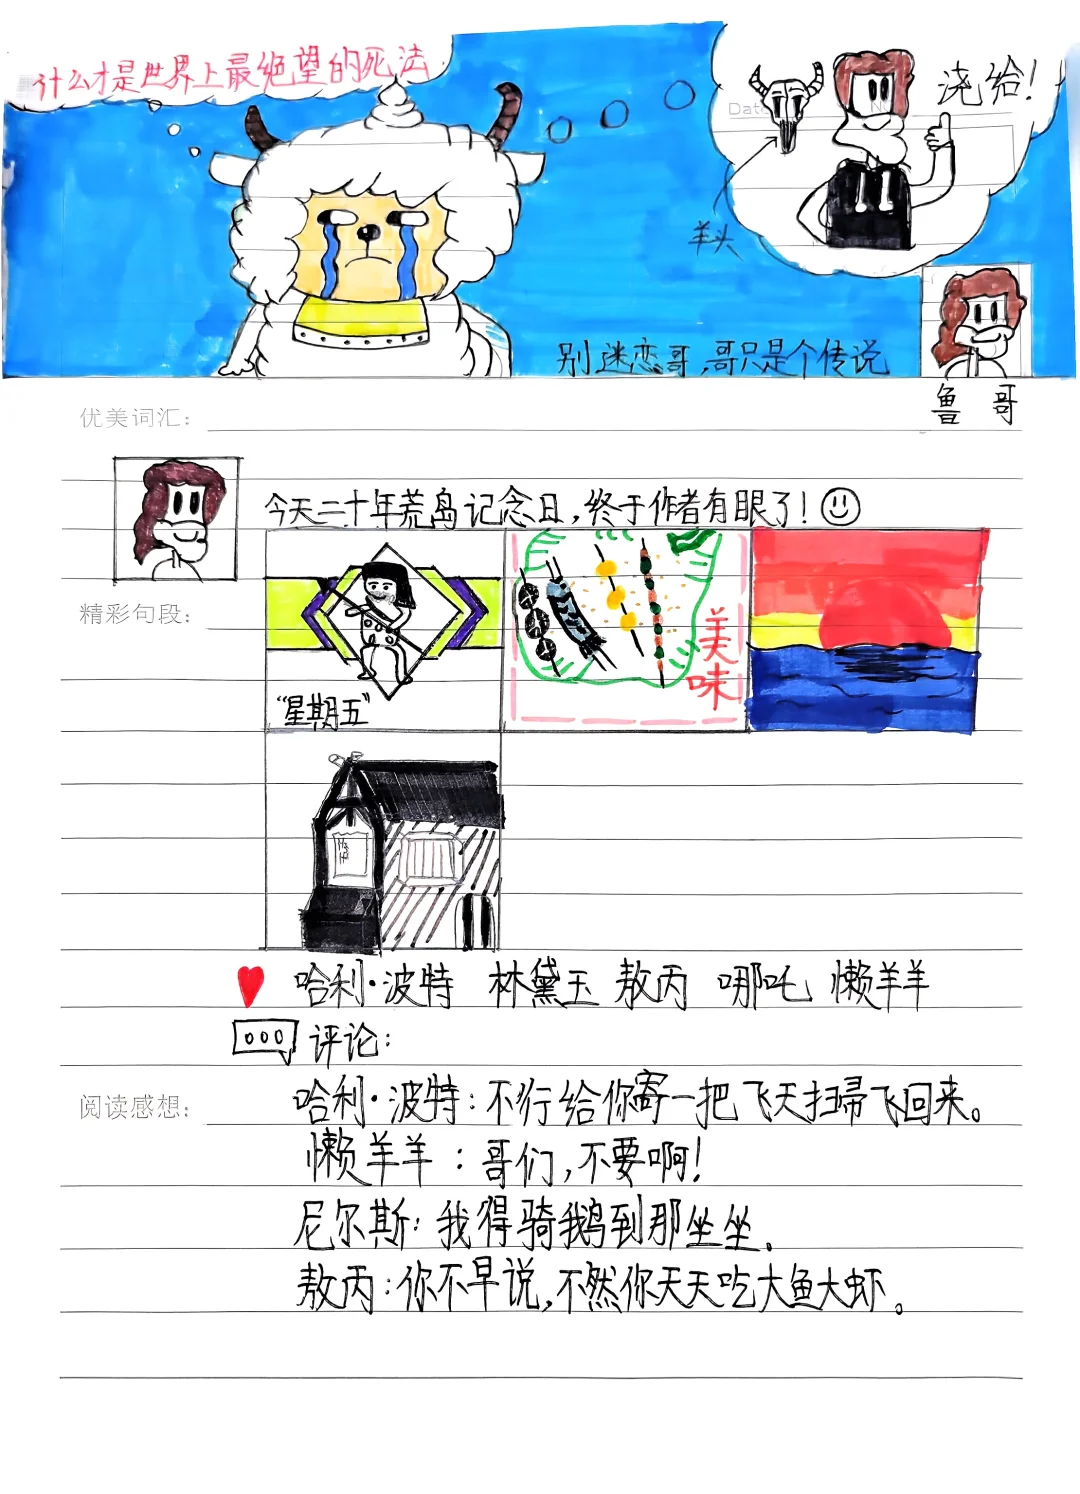 什么才是世界上最绝望的死法
浇给!
Date
No
羊头
别迷恋哥,哥只是个传说
鲁哥
优美词汇:
今天二十年荒岛记念日,终于作者有眼了!
精彩句段:
美味
"星期五"
哈利·波特 林黛玉 敖丙 哪吒 懒羊羊
评论:
阅读感想:
哈利·波特:不行给你寄一把飞天扫帚飞回来。
懒羊羊:哥们,不要啊!
尼尔斯:我得骑鹅到那坐坐.
敖丙:你不早说,不然你天天吃大鱼大虾。